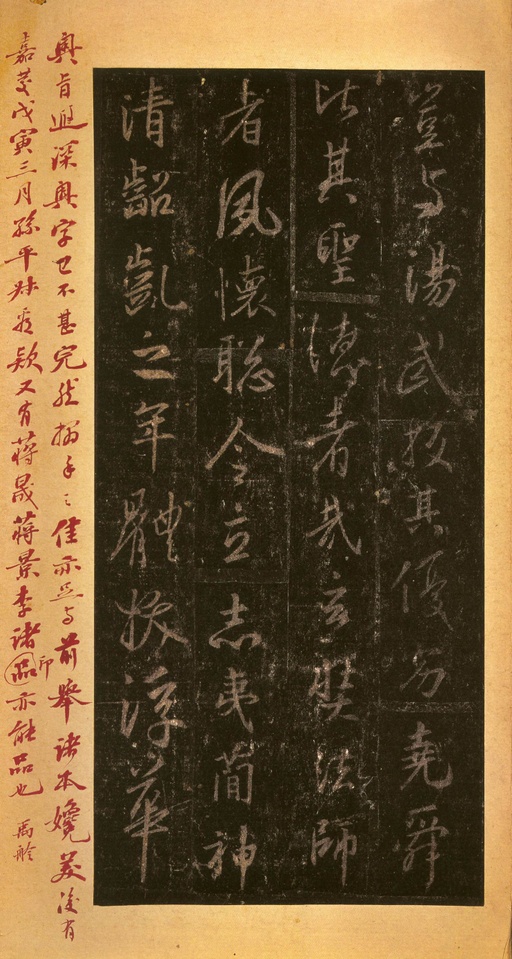 豈与湯武挍其優劣堯舜
比其聖德者哉玄奘法師
者夙懷聡令立志夷簡神
清齠齓之年體拔浮華
奧旨遐深奧字已不甚完然搨手之佳亦足与前舉諸本媲美後有
嘉慶戊寅三月孫平叔觀款又有蔣晟蔣景李諸品印亦能品也 禹舲